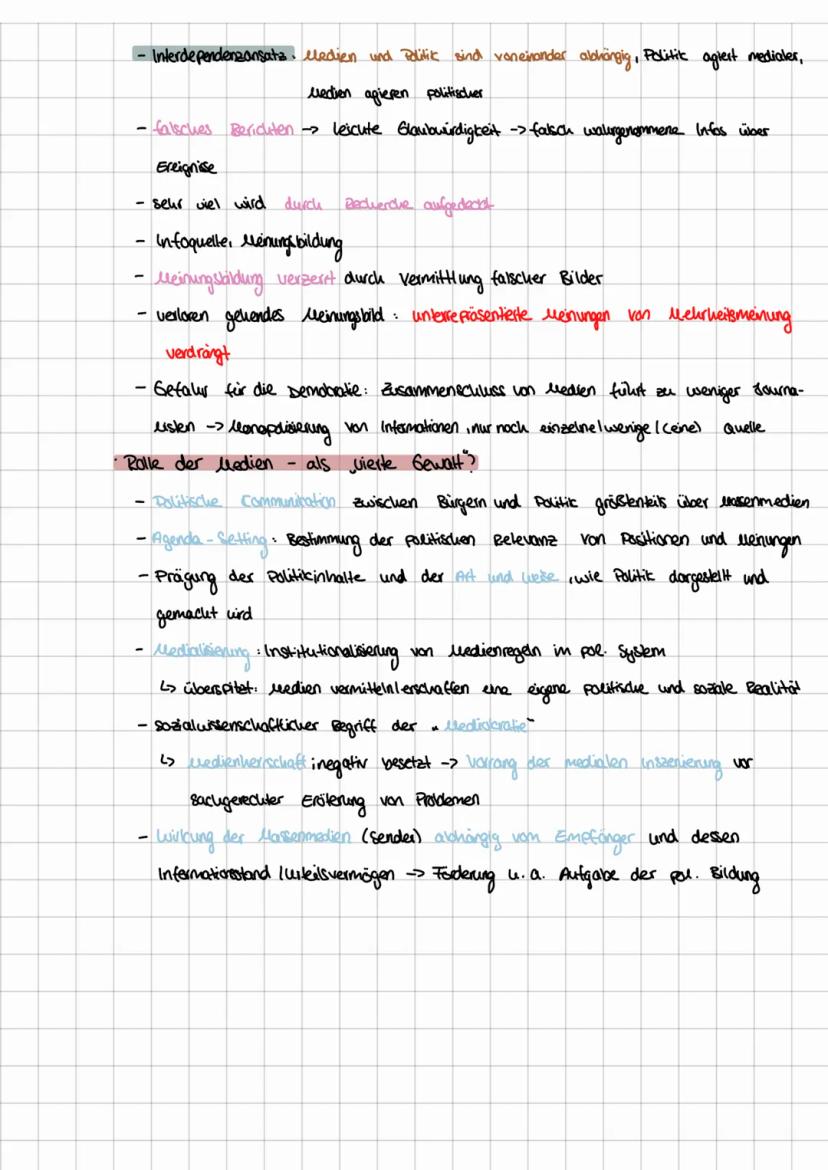 - Interdependenzansatz: Medien und Politik sind voneinander abhängig, Politik agiert medialer,
Medien agieren politischer
- falsches Berichten -> leichte Glaubwürdigkeit -> falsch wahrgenommene Infos über
Ereignisse
- sehr viel wird durch Recherche aufgedeckt
- Infoquelle, Meinungsbildung
- Meinungsbildung verzerrt durch Vermittlung falscher Bilder
- verloren gehendes Meinungsbild: unterrepräsentierte Meinungen von Mehrheitsmeinung
verdrängt
- Gefahr für die Demokratie: Zusammenschluss von Medien führt zu weniger Journa-
listen -> Monopolisierung von Informationen, nur noch einzelne/wenige/(eine) Quelle
· Rolle der Medien - als „vierte Gewalt"?
- Politische Communikation zwischen Bürgern und Politik größtenteils über Massenmedien
- Agenda-Setting: Bestimmung der politischen Relevanz von Positionen und Meinungen
- Prägung der Politikinhalte und der Art und Weise, wie Politik dargestellt und
gemacht wird
- Medialisierung: Institutionalisierung von Medienregeln im pol. System
↳ überspitzt: Medien vermitteln/erschaffen eine eigene politische und soziale Realität
- sozialwissenschaftlicher Begriff der "Mediokratie"
↳ Medienherrschaft; negativ besetzt -> Vorrang der medialen Inszenierung vor
sachgerechter Erörterung von Problemen
- Wirkung der Massenmedien (Sender) abhängig vom Empfänger und dessen
Informationsstand/Urteilsvermögen -> Förderung u.a. Aufgabe der pol. Bildung